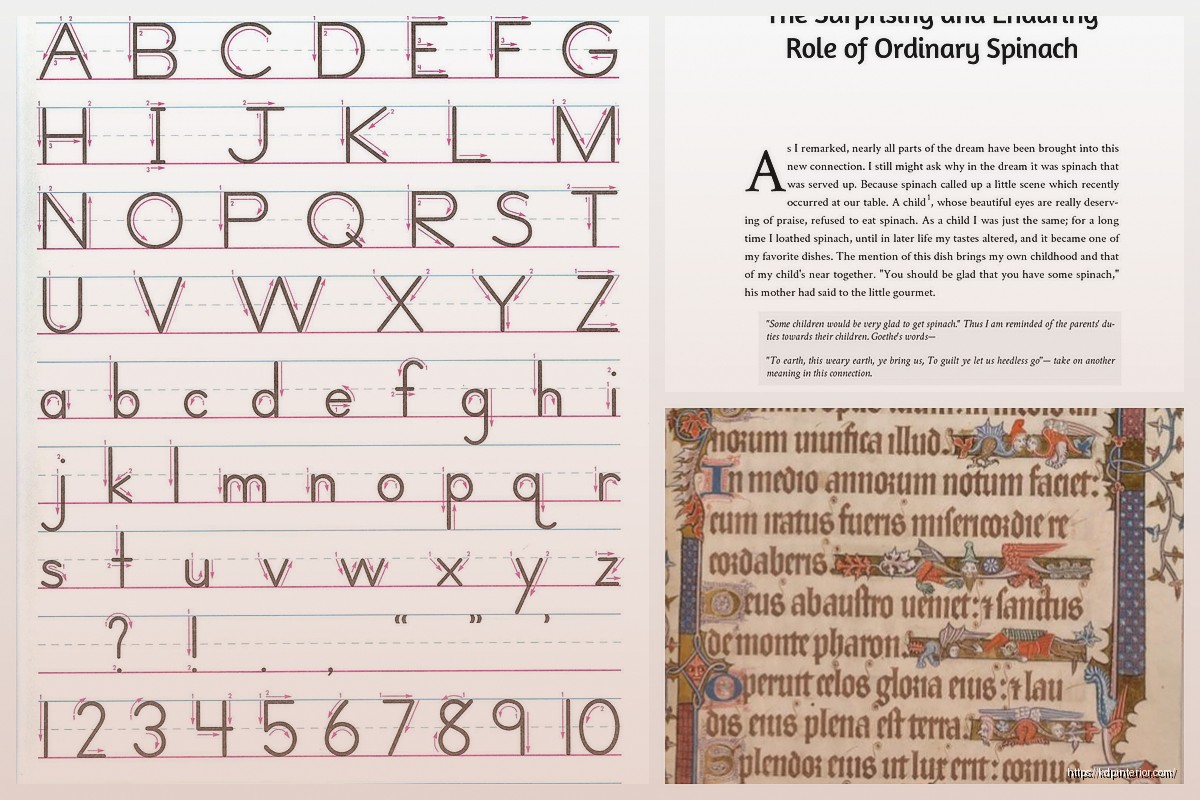 A B C D E F G
H I J K L M
N O P Q R S T
U V W X Y Z
a b c d e f g h i
j k l m n o p q r
s t u v w x y z
? ! . , “ ” ’
1 2 3 4 5 6 7 8 9 10
The Surprising and Enduring
Role of Ordinary Spinach
As I remarked, nearly all parts of the dream have been brought into this
new connection. I still might ask why in the dream it was spinach that
was served up. Because spinach called up a little scene which recently
occurred at our table. A child¹, whose beautiful eyes are really deserv-
ing of praise, refused to eat spinach. As a child I was just the same; for a long
time I loathed spinach, until in later life my tastes altered, and it became one of
my favorite dishes. The mention of this dish brings my own childhood and that
of my child's near together. "You should be glad that you have some spinach,"
his mother had said to the little gourmet.
"Some children would be very glad to get spinach." Thus I am reminded of the parents' du-
ties towards their children. Goethe's words—
"To earth, this weary earth, ye bring us, To guilt ye let us heedless go"— take on another
meaning in this connection.
norum uiuifica illud.
In medio annorum notum facies:
cum iratus fueris misericordie re
cordaberis.
Deus ab austro ueniet: ⁊ sanctus
de monte pharon.
Operuit celos gloria eius: ⁊ lau
dis eius plena est terra.
Splendor eius ut lux erit: cornua
https://kdpinterior.com/